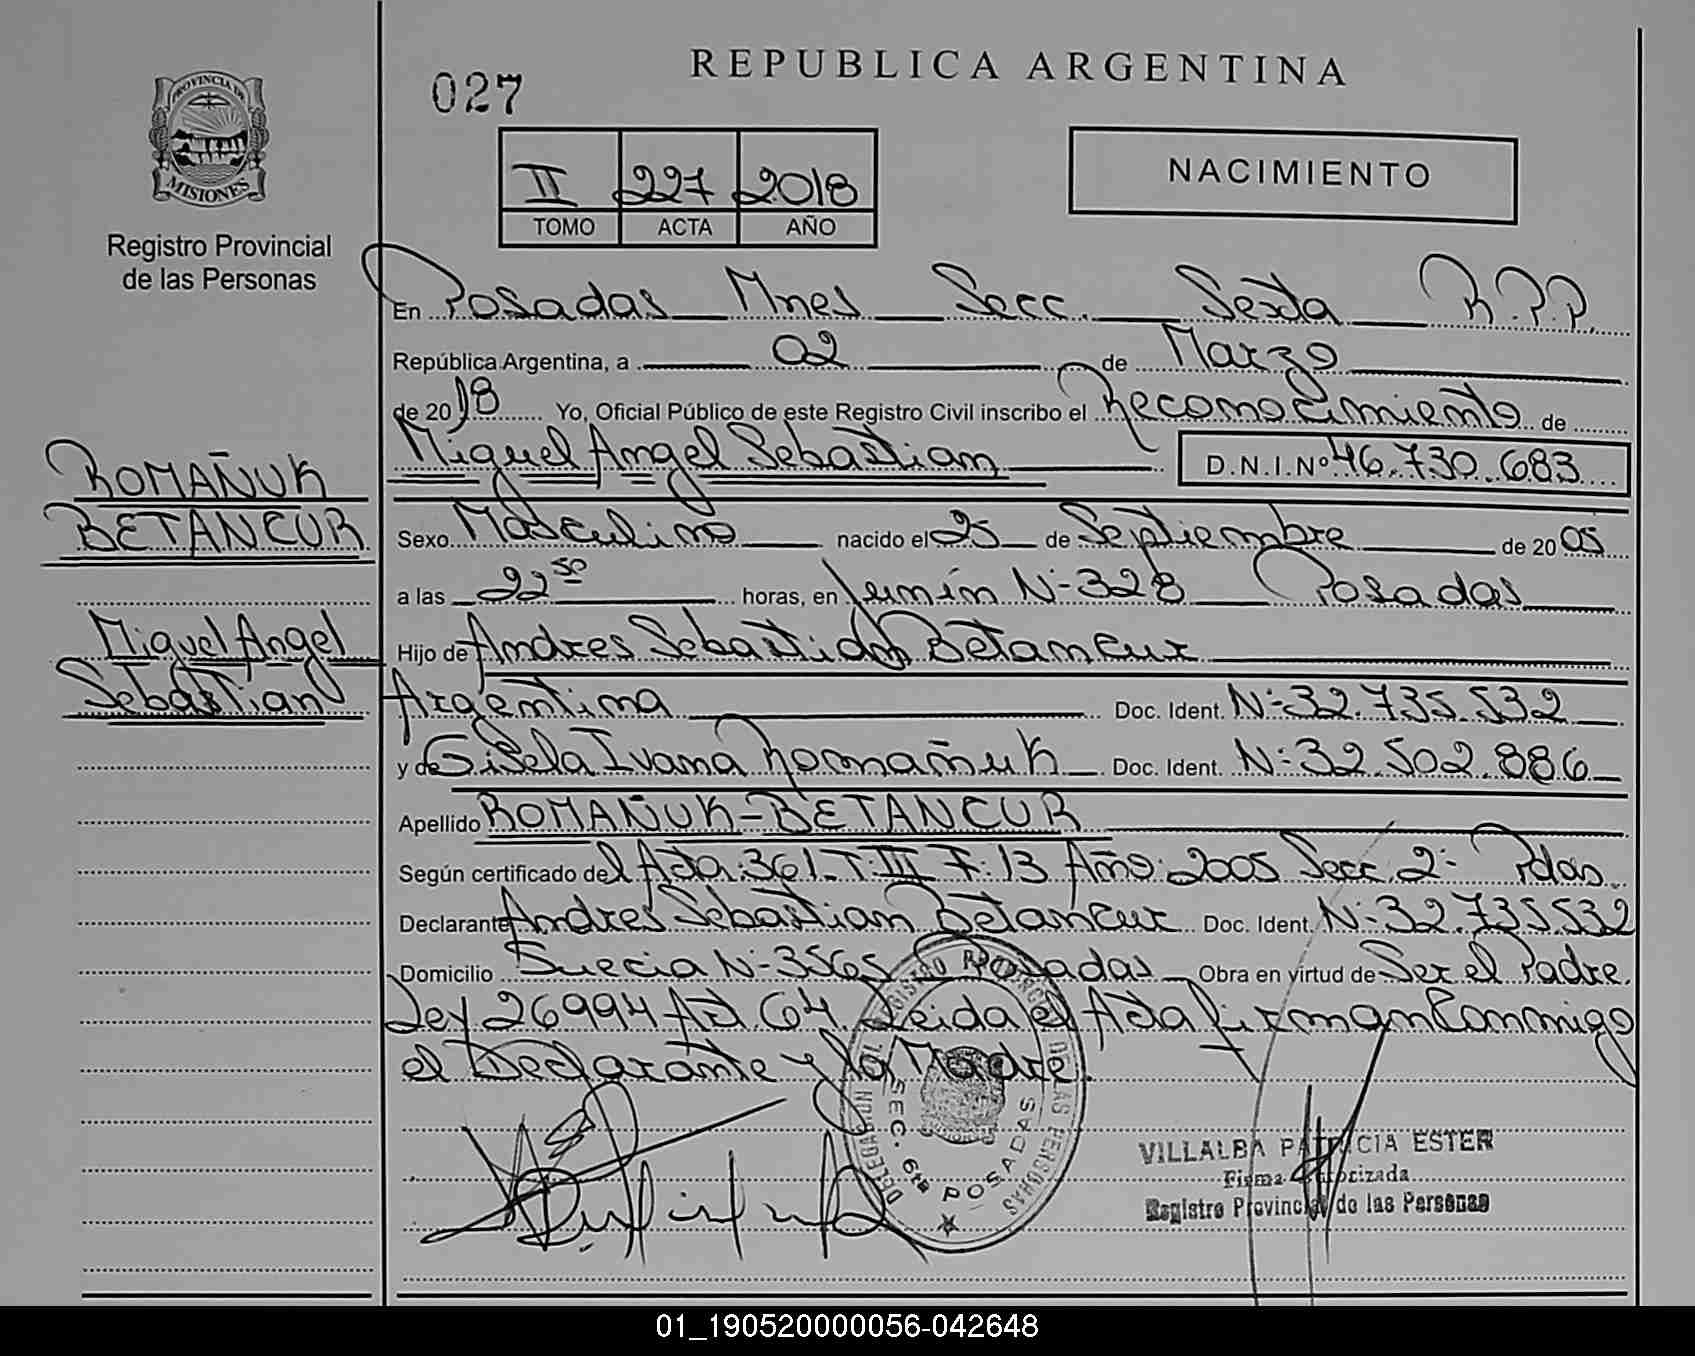 REPUBLICA ARGENTINA
027
PROVINCIA DE
MISIONES
Registro Provincial
de las Personas
II 227 2018
TOMO ACTA AÑO
NACIMIENTO
En Posadas Mnes Secc. Sexta R.P.P.
República Argentina, a 02 de Marzo
de 2018 Yo, Oficial Público de este Registro Civil inscribo el Reconocimiento de
Miguel Angel Sebastian D.N.I.Nº 46.730.683
ROMAÑUK
BETANCUR
Miguel Angel
Sebastian
Sexo Masculino nacido el 25 de Septiembre de 2005
a las 22 50 horas, en Junín Nº 328 Posadas
Hijo de Andres Sebastian Betancur
Argentina Doc. Ident. Nº 32.735.532
y de Gisela Ivana Romañuk Doc. Ident. Nº 32.502.886
Apellido ROMAÑUK-BETANCUR
Según certificado del Acta:361-T:III F:13 Año:2005 Secc. 2º Pdas.
Declarante Andres Sebastian Betancur Doc. Ident. Nº 32.735532
Domicilio Suecia Nº 3565 Posadas Obra en virtud de Ser el Padre.
Ley 26994 Art. 64 Leida el Acta firman Conmigo
el Declarante y la Madre.
DELEGACION DEL REGISTRO PROVINCIAL DE LAS PERSONAS
SEC. 6ta POSADAS
VILLALBA PATRICIA ESTER
Firma Autorizada
Registro Provincial de las Personas
01_190520000056-042648